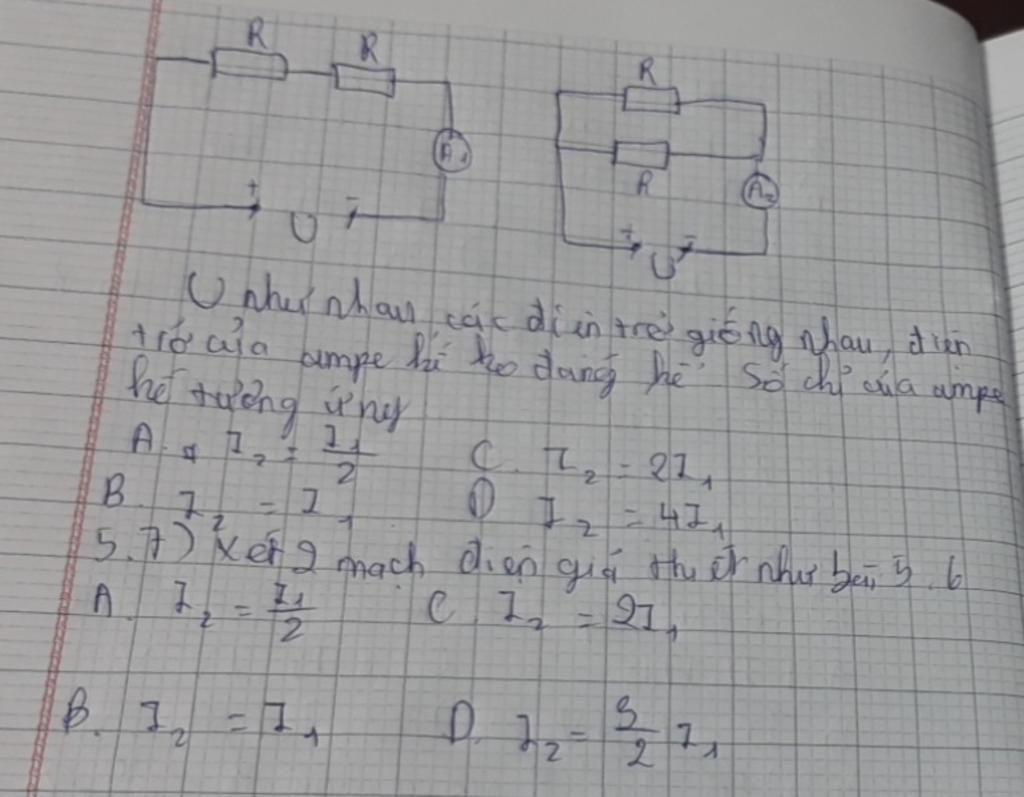 R R
R
A1
R
A2
+ U -
+ U -
U như nhau, các điện trở giống nhau, điện
trở của ampe kế ko đáng kể Số chỉ của ampe
kế tương ứng
A. I₂ = I₁/2 C. I₂ = 2I₁
B. I₂ = I₁ D I₂ = 4I₁
5.7) Xét 2 mạch điện giả thiết như bài 5.6
A. I₂ = I₁/2 C I₂ = 2I₁
B. I₂ = I₁ D. I₂ = 3/2 I₁